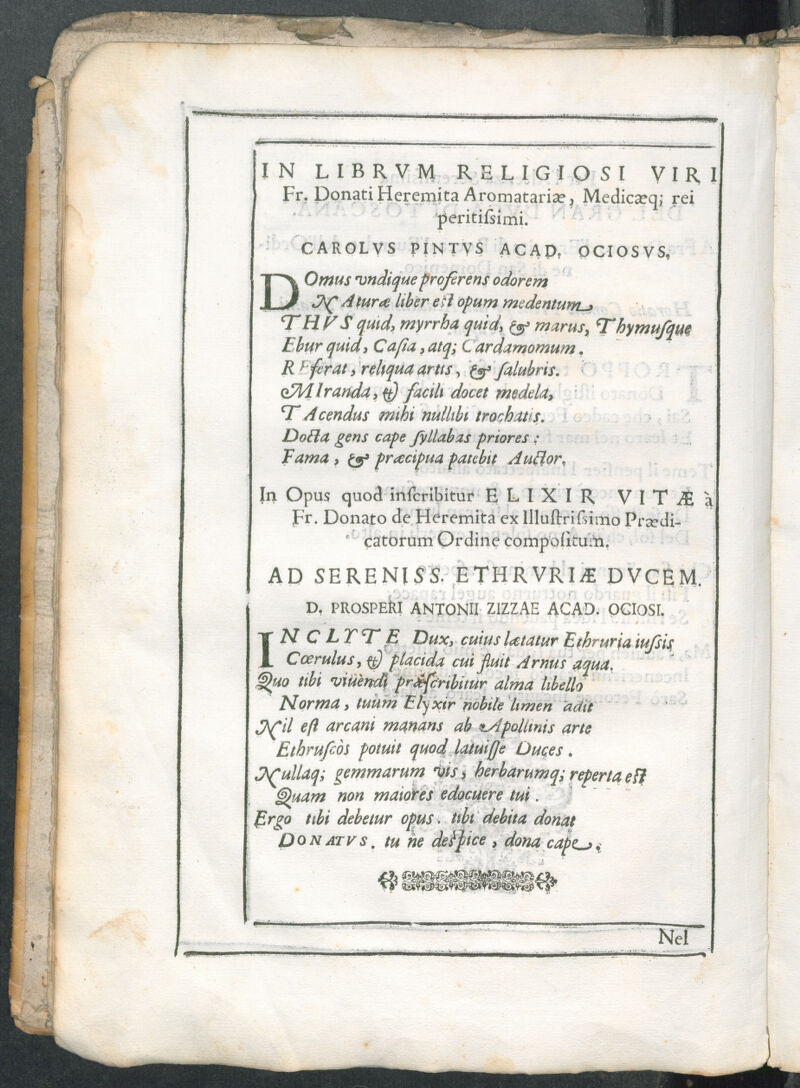 IN LIBRVM RELIGIOSI VIRI
Fr. Donati Heremita Aromatariæ, Medicæq; rei
peritiſsimi.
CAROLVS PINTVS ACAD. OCIOSVS,
DOmus vndique proferens odorem
NAturæ liber eſt opum medentum,
THVS quid, myrrha quid, & marus, Thymuſque
Ebur quid, Caſia, atq; Cardamomum.
REferat, reliqua artis, & ſalubris.
MIranda, & facili docet medela,
TAcendus mihi nullibi trochatis.
Docta gens cape ſyllabas priores:
Fama, & præcipua patebit Auctor,
In Opus quod inſcribitur ELIXIR VITÆ à
Fr. Donato de Heremita ex Illuſtriſsimo Prædi-
catorum Ordine compoſitum.
AD SERENISS. ETHRVRIÆ DVCEM.
D. PROSPERI ANTONII ZIZZAE ACAD. OCIOSI.
INCLYTE Dux, cuius lætatur Ethruria iuſsis
Cœrulus, & placida cui fluit Arnus aqua.
Quo tibi viuendi præſcribitur alma libello
Norma, tuum Elyxir nobile limen adit
Nil eſt arcani manans ab Apollinis arte
Ethruſcòs potuit quod latuiſſe Duces.
Nullaq; gemmarum vis, herbarumq; reperta eſt
Quam non maiores edocuere tui.
Ergo tibi debetur opus. tibi debita donat
DONATVS. tu ne deſpice, dona cape.
Nel